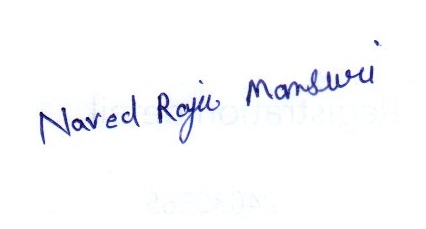 Naved Raju Mansuri